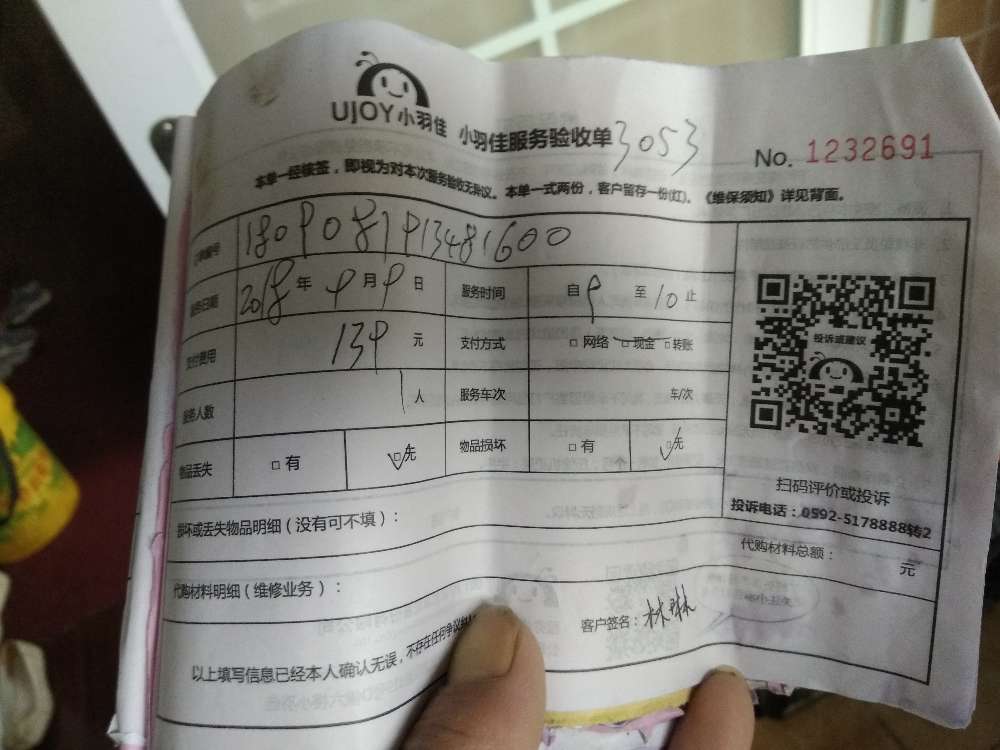 UJOY小羽佳 小羽佳服务验收单 3053
No. 1232691
本单一经核签，即视为对本次服务验收无异议。本单一式两份，客户留存一份(红)。《维保须知》详见背面。
订单编号 1809081913481600
服务日期 2018年9月9日 服务时间 自9至10止
支付费用 139元 支付方式 □网络 □现金 □转账
服务人数 1人 服务车次 车/次
物品丢失 □有 □无 物品损坏 □有 □无
投诉或建议
扫码评价或投诉
投诉电话：0592-5178888转2
损坏或丢失物品明细（没有可不填）：
代购材料明细（维修业务）：
代购材料总额： 元
以上填写信息已经本人确认无误，不存在任何争议
客户签名：林琳